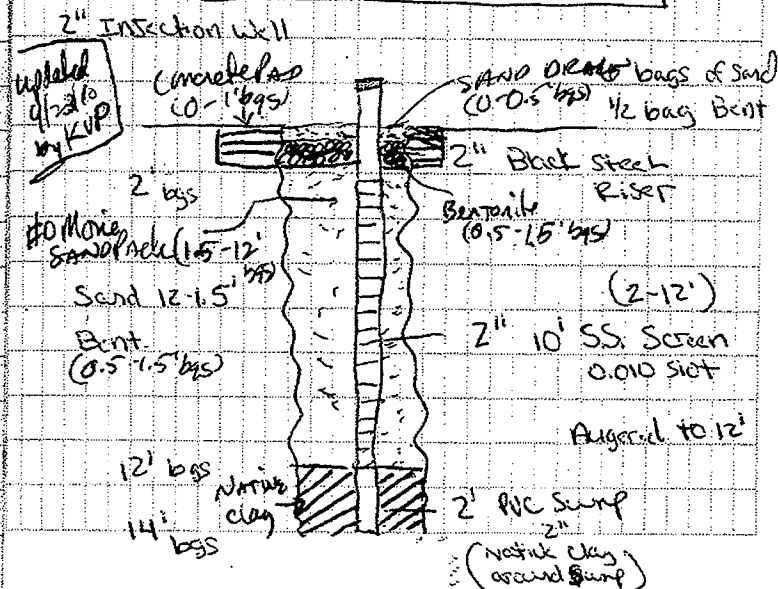 2" Injection Well
updated
by KVP
Concrete PAD
(0-1' bgs)
SAND DRAIN
(0-0.5' bgs)
5 bags of Sand
1/2 bag Bent
2" Black Steel
Riser
2' bgs
Bentonite
(0.5-1.5' bgs)
#0 Morie
SANDPACK (1.5-12'
bgs)
Sand 12-1.5'
Bent.
(0.5-1.5' bgs)
(2-12')
2" 10' S.S. Screen
0.010 Slot
Augered to 12'
12' bgs
NATIVE
clay
14'
bgs
2' PVC Sump
2"
(Native clay
around Sump)